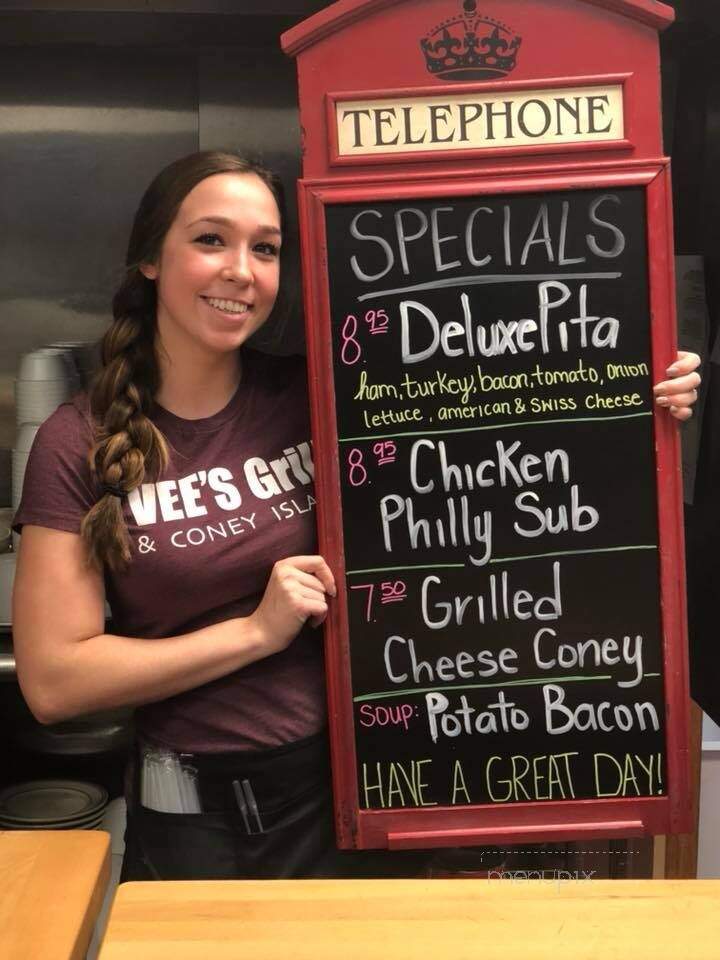 TELEPHONE
SPECIALS
8.95 Deluxe Pita
ham, turkey, bacon, tomato, onion
lettuce, american & Swiss Cheese
8.95 Chicken
Philly Sub
7.50 Grilled
Cheese Coney
Soup: Potato Bacon
HAVE A GREAT DAY!
VEE'S Gril
& CONEY ISLA
menupix